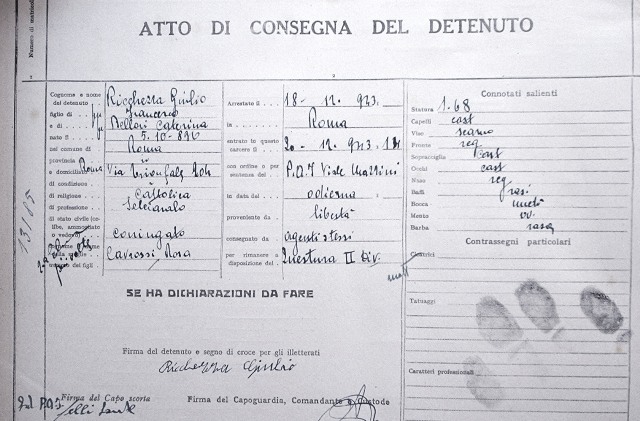 ATTO DI CONSEGNA DEL DETENUTO
Numero di matricola
Cognome e nome del detenuto Ricchezza Giulio
figlio di fu Francesco
e di fu Bellori Caterina
nato il 5-10-896
nel comune di Roma
provincia Roma
e domiciliato Via Trionfale
di condizione
di religione Cattolica
di professione Selcianolo
di stato civile (celibe, ammogliato o vedovo) coniugato
Cavrossi Rosa
numero dei figli
Arrestato il 18-12-923.
in Roma
entrato in questo carcere il 20-12-923
con ordine o per sentenza del P.Q.T Viale Mazzini
in data del odierna
proveniente da libertà
consegnato da agenti stessi
per rimanere a disposizione del Questura II Div.
Connotati salienti
Statura 1.68
Capelli cast
Viso scarno
Fronte reg
Sopracciglia cast
Occhi cast
Naso reg
Baffi rasi
Bocca media
Mento ov.
Barba rasa
Contrassegni particolari
Cicatrici
Tatuaggi
Caratteri professionali
SE HA DICHIARAZIONI DA FARE
Firma del detenuto e segno di croce per gli illetterati
Ricchezza Giulio
Firma del Capo scorta
Firma del Capoguardia, Comandante o Custode
13105